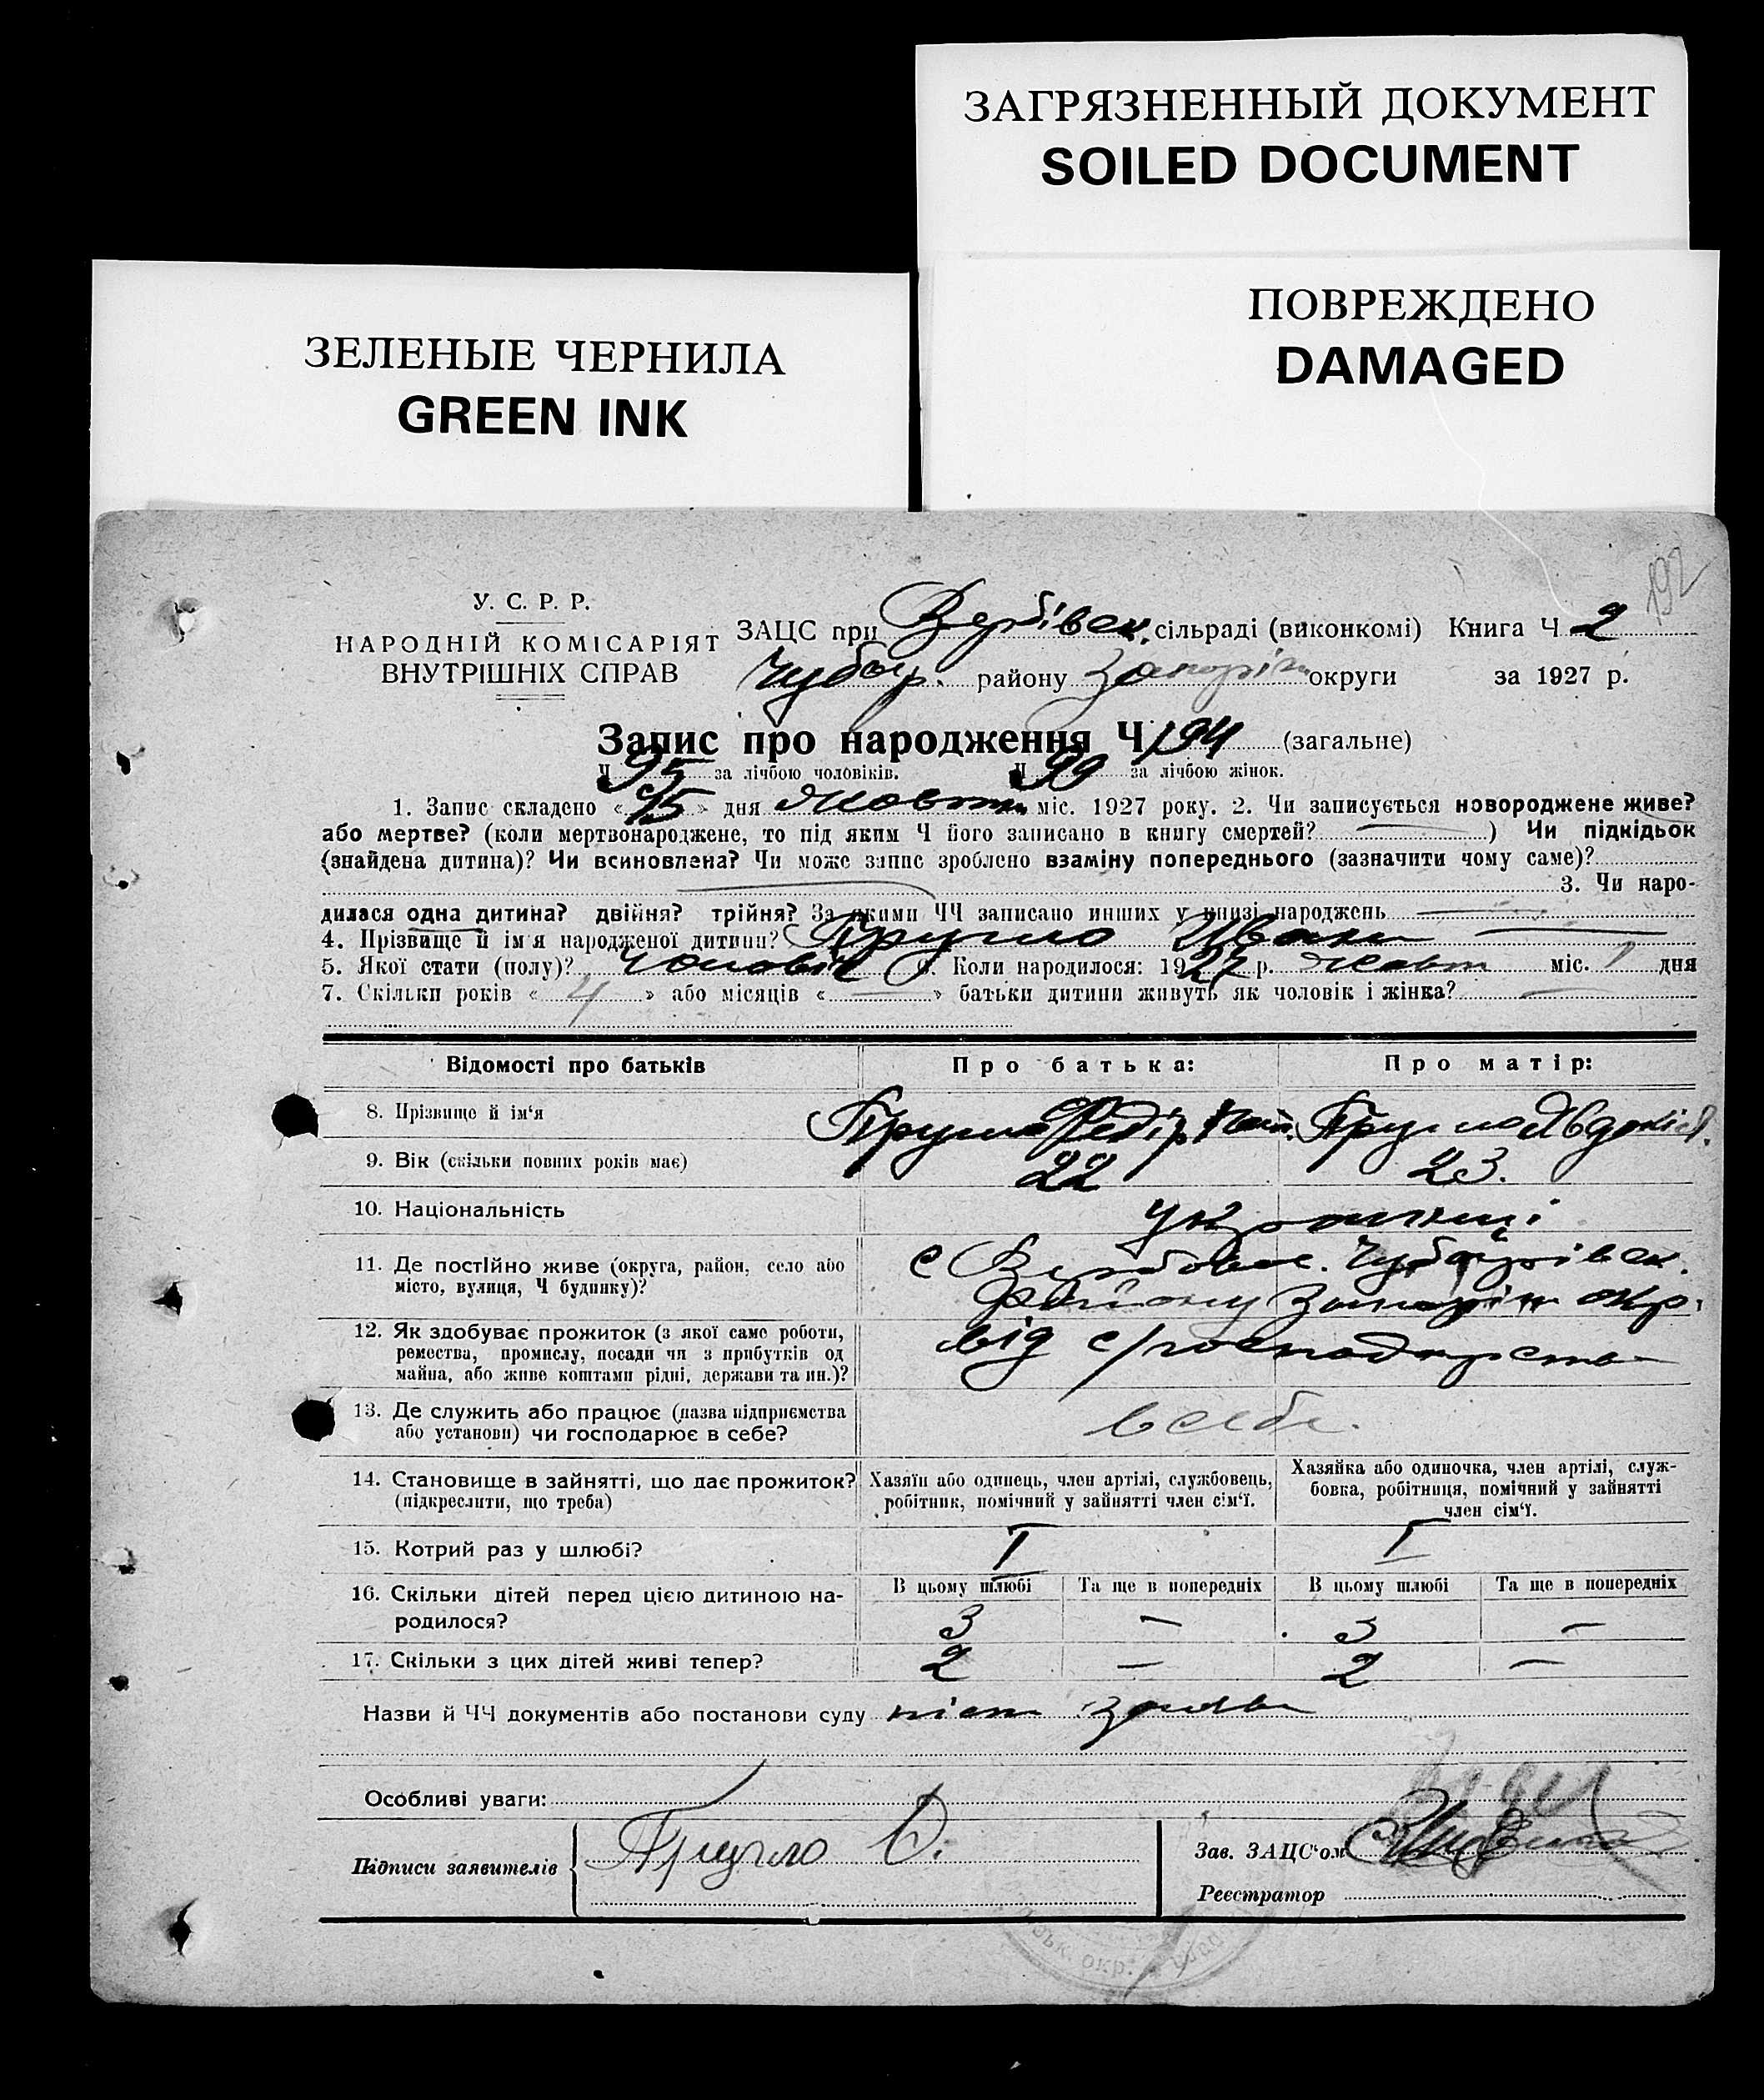 ЗАГРЯЗНЕННЫЙ ДОКУМЕНТ
SOILED DOCUMENT
ПОВРЕЖДЕНО
DAMAGED
ЗЕЛЕНЫЕ ЧЕРНИЛА
GREEN INK
192
У. С. Р. Р.
НАРОДНІЙ КОМІСАРІЯТ
ВНУТРІШНІХ СПРАВ
ЗАЦС при Вербівск. сільраді (виконкомі) Книга Ч 2
Чубар. району Запоріж округи за 1927 р.
Запис про народження Ч 194 (загальне)
Ч 95 за лічбою чоловіків. Ч 99 за лічбою жінок.
1. Запис складено «15» дня Жовтн міс. 1927 року. 2. Чи записується новороджене живе?
або мертве? (коли мертвонароджене, то під яким Ч його записано в книгу смертей? ) Чи підкідьок
(знайдена дитина)? Чи всиновлена? Чи може запис зроблено взаміну попереднього (зазначити чому саме)?
3. Чи наро-
дилася одна дитина? двійня? трійня? За якими ЧЧ записано инших у книзі народжень
4. Прізвище й ім'я народженої дитини? Іван
5. Якої стати (полу)? Чоловіч 6. Коли народилося: 1927 р. Жовт міс. 1 дня
7. Скільки років « 4 » або місяців « — » батьки дитини живуть як чоловік і жінка?
Відомості про батьків Про батька: Про матір:
8. Прізвище й ім'я Федір Явдокія
9. Вік (скільки повних років має) 22 23.
10. Національність українці
11. Де постійно живе (округа, район, село або
місто, вулиця, Ч будинку)?
с Вербове. Чубарівск.
району Запоріж окр.
12. Як здобуває прожиток (з якої само роботи,
ремества, промислу, посади чи з прибутків од
майна, або живе коштами рідні, держави та ин.)?
від с/господарства
13. Де служить або працює (назва підприємства
або установи) чи господарює в себе?
в себе.
14. Становище в зайнятті, що дає прожиток?
(підкреслити, що треба)
Хазяїн або одинець, член артілі, службовець,
робітник, помічний у зайнятті член сім'ї.
Хазяйка або одиночка, член артілі, служ-
бовка, робітниця, помічний у зайнятті
член сім'ї.
15. Котрий раз у шлюбі? I I
16. Скільки дітей перед цією дитиною на-
родилося?
В цьому шлюбі Та ще в попередніх В цьому шлюбі Та ще в попередніх
3 — 3 —
17. Скільки з цих дітей живі тепер? 2 — 2 —
Назви й ЧЧ документів або постанови суду
Особливі уваги:
Підписи заявителів
Зав. ЗАЦС'ом
Реєстратор
окр.